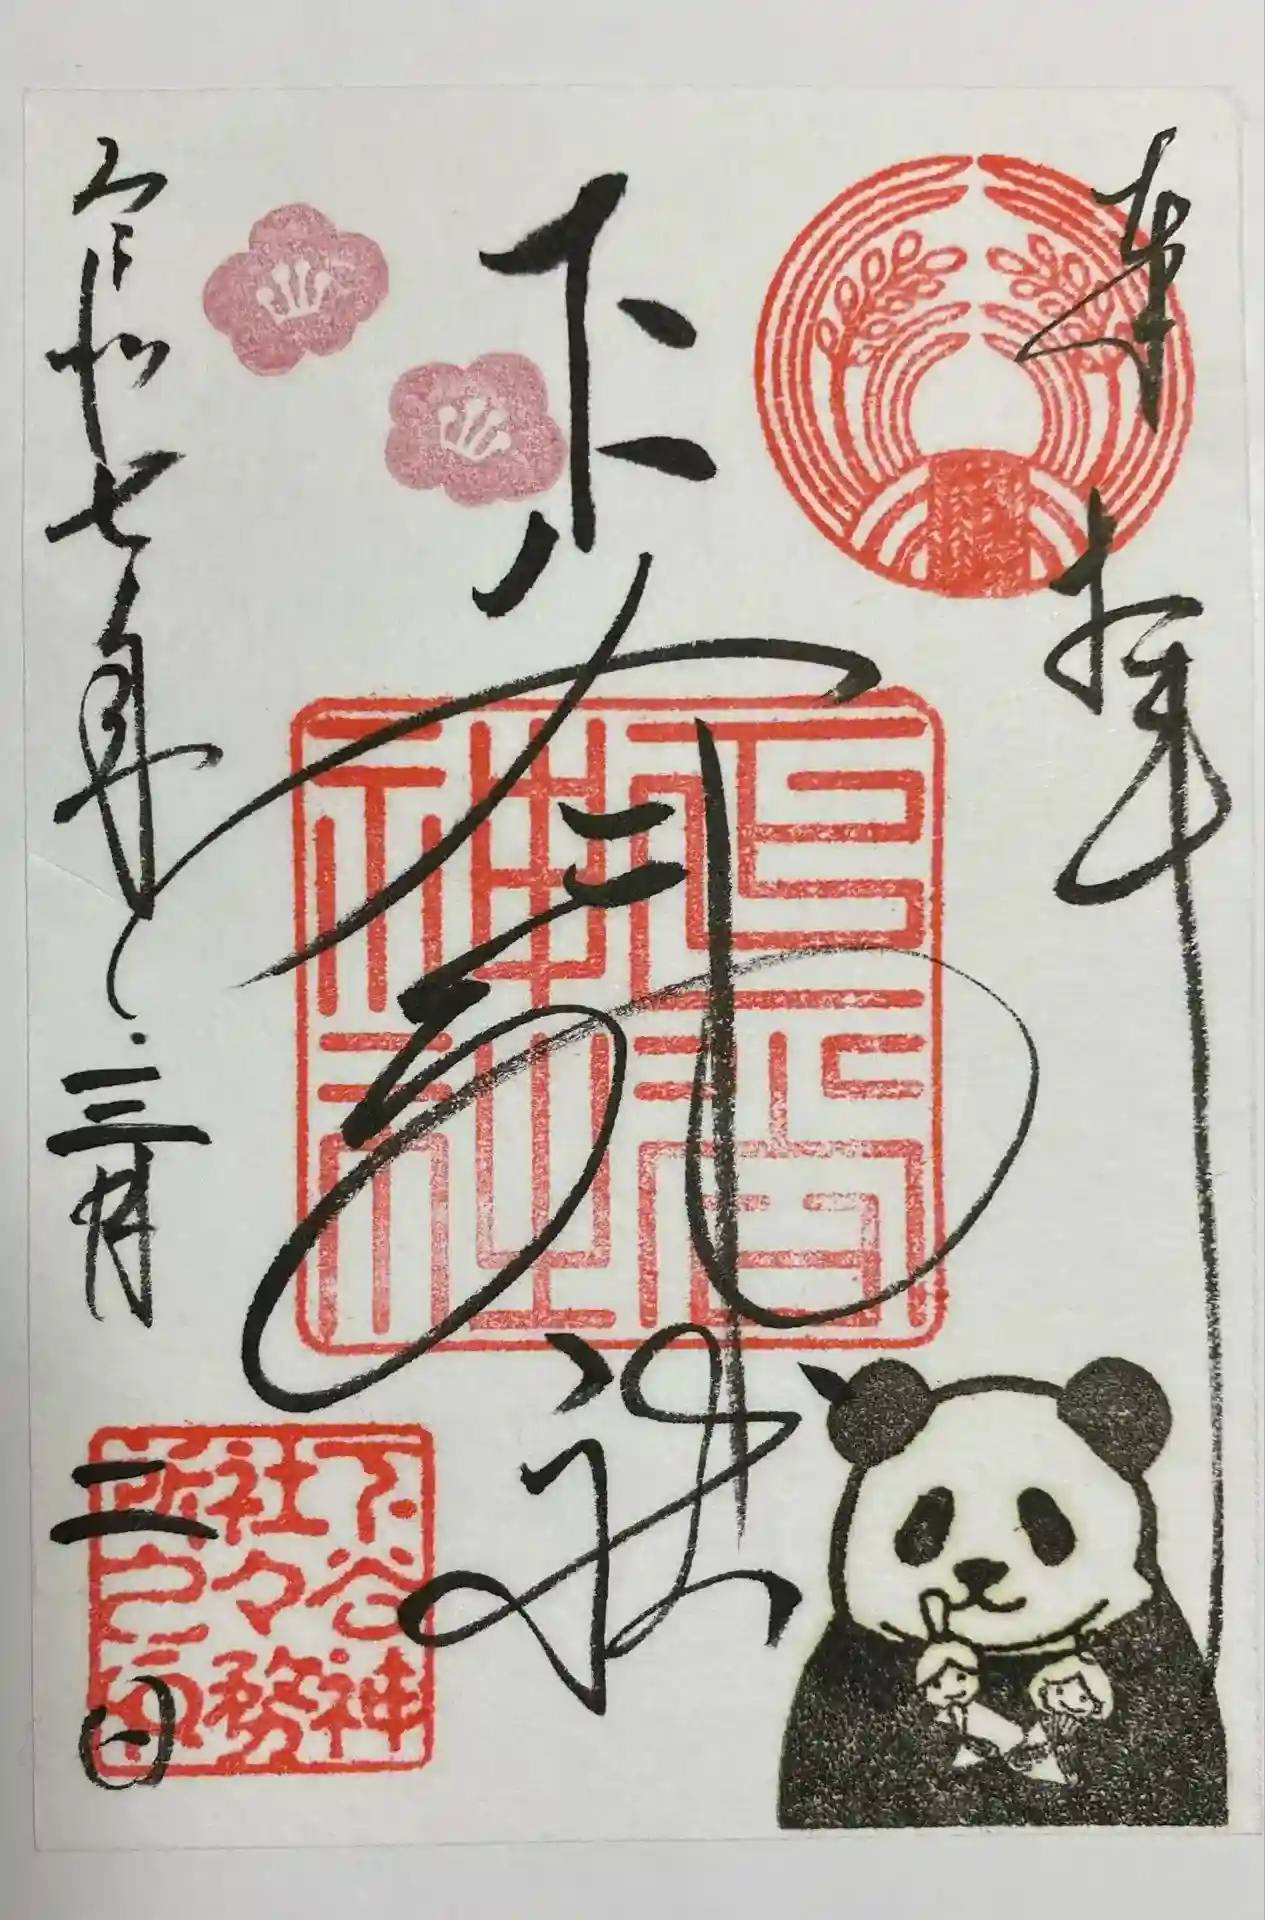 奉拝
下谷神社
令和七年三月二日
下谷
神社
下谷神
社々務
所之印